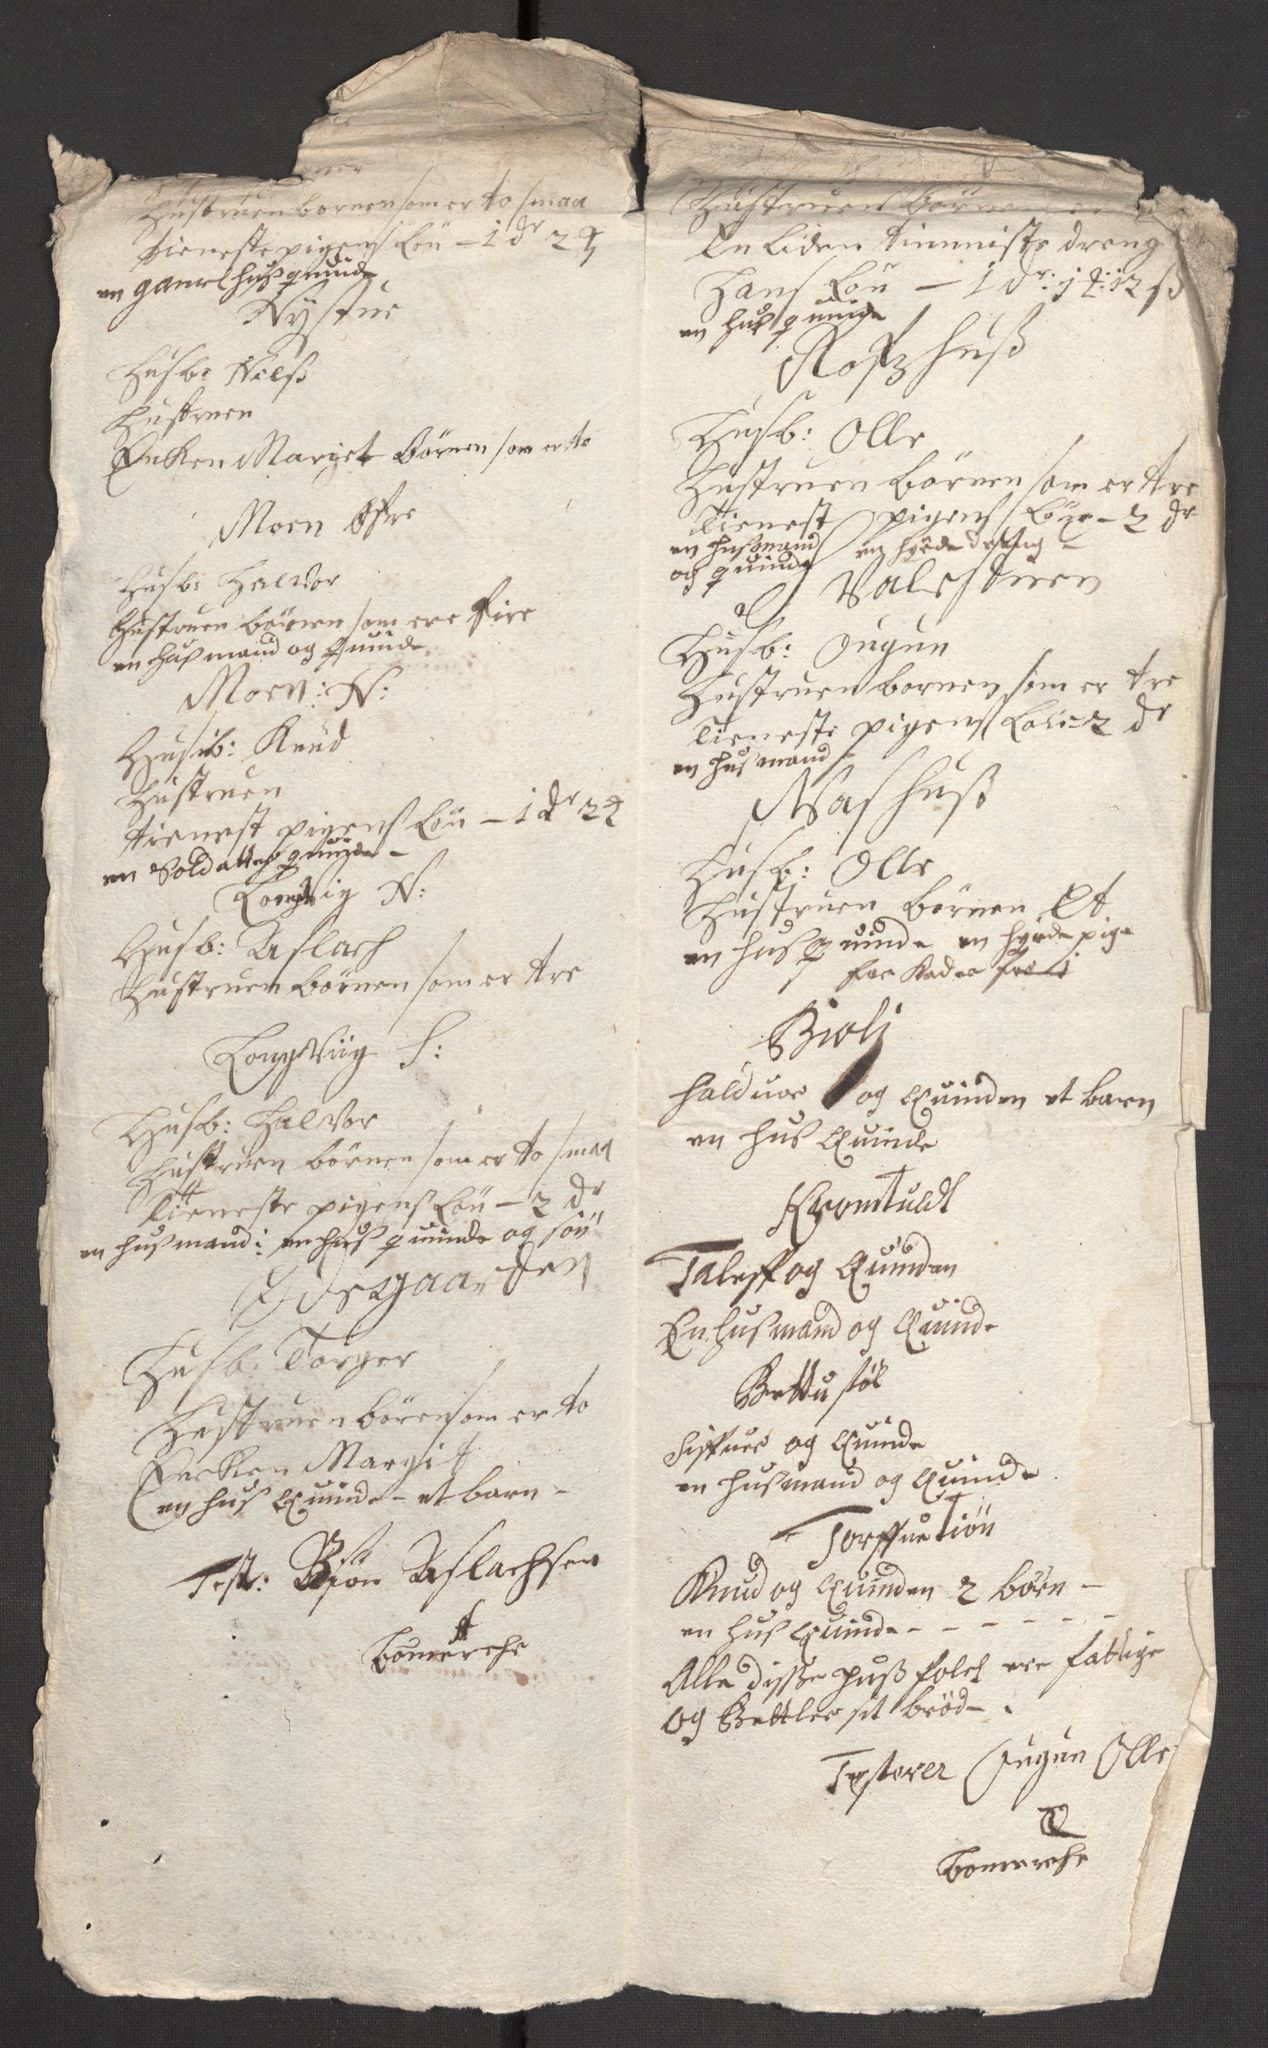 Hustruen bornen som er to smaa
Tieneste pigens Lön – 1 dr 2
en gamel husquinde
Nystue
Husb: Nelß
Hustruen
Enken Margit börnen som er to
Moen Øfre
Husb: Halvor
Hustruen börnen som ere fire
en husmand og quinde
Moen: N:
Husb: Knud
Hustruen
tienest pigens Lön – 1 dr 2
en Soldatter quinde –
Longvig N:
Husb: Aslach
Hustruen börnen som er tre
Longviig S:
Husb: Halvor
Hustruen börnen som er to smaa
Tieneste pigens Lön – 2 dr
en husmand: en hus quinde og sön
Ödegaarden
Husb: Torger
Hustruen bören som er to
Encken Margit
en hus Quinde – et barn –
Test: Biön Aslachsen
bomerche
Hustruen börnen
en liden tienniste dreng
Hans Lön – 1 dr: 1 : 12 ß
en hus quinde
Rofshuß
Husb: Olle
Hustruen börnen som er tre
Tienest pigens Lön – 2 dr
en husmand en hyrde dreng –
og quinde
Valestuen
Husb: Jugun
Hustruen bornen som er tre
Tieneste pigens Lön – 2 dr
en husmand –
Washuß
Husb: Olle
Hustruen börnen Et
en husquinde en hyrde pige
Bioli
Halduor og Quinden et barn
en hus Quinde
Kromtuedt
Taleff og Quinden
En husmand og Quinde
Bettustöl
Siffuer og Quinde
en husmand og Quinde
Torffuetiön
Knud og Quinden 2 börn –
en hus Quinde – – – – – –
Alle disse huß folch ere fattige
og Bettler sit bröd – .
Testerer Jugun Olle
bomerche